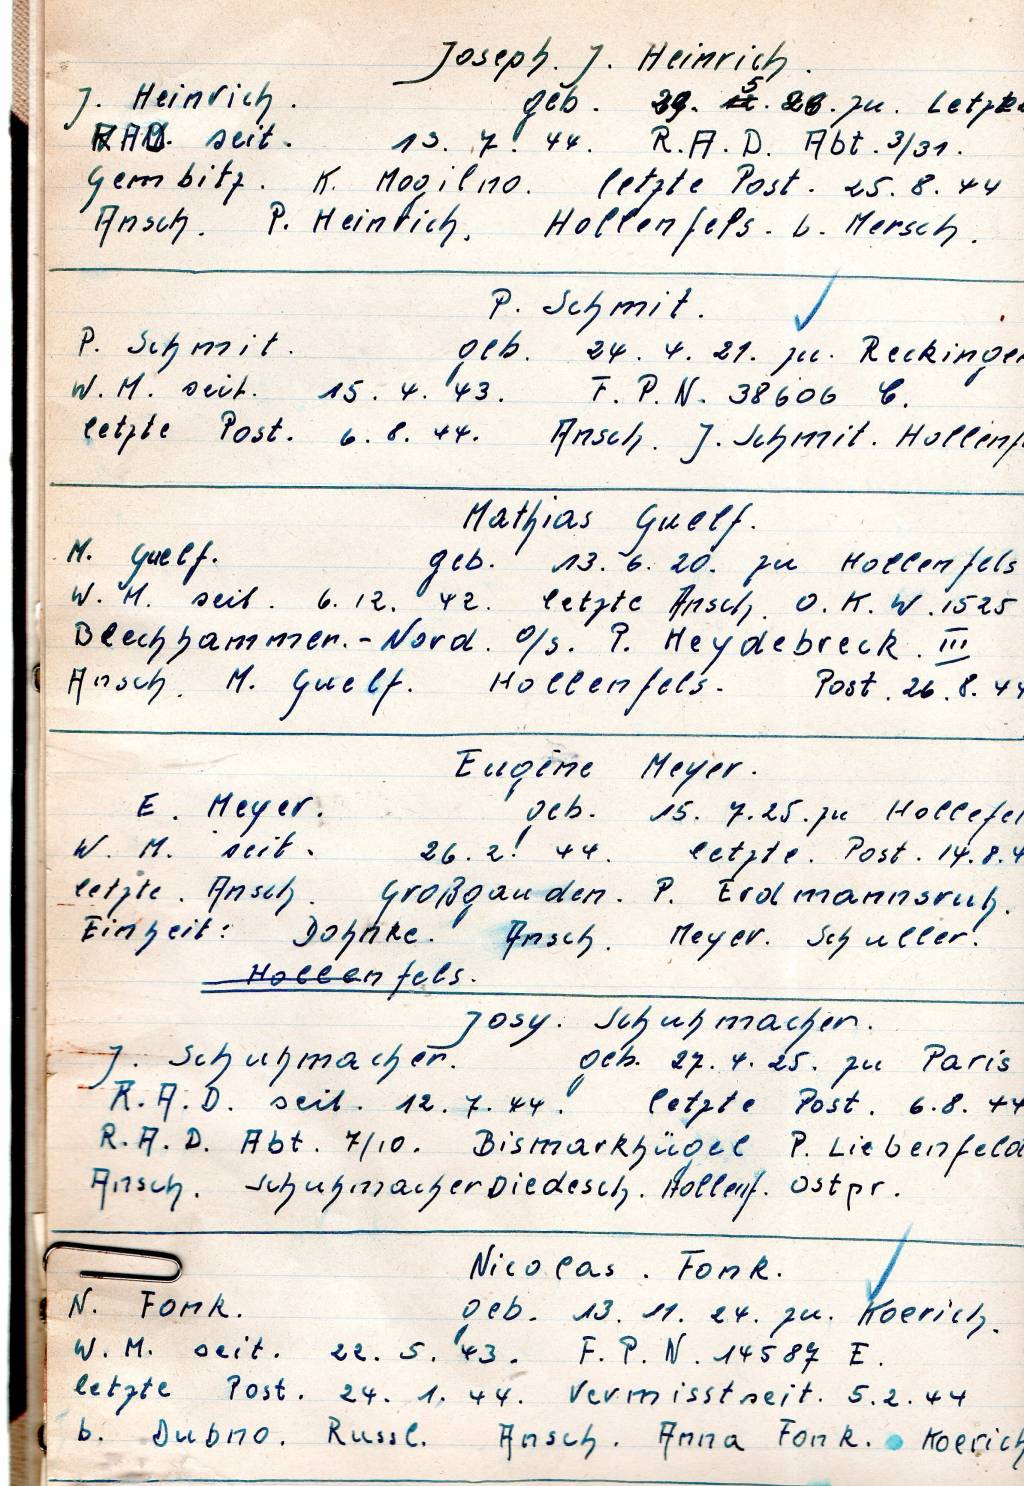 Joseph. J. Heinrich.
J. Heinrich. geb. 29. 5. 26. zu. Letz
R.A.D. seit. 13. 7. 44. R.A.D. Abt. 3/31.
Gembitz. K. Mogilno. letzte Post. 25. 8. 44
Ansch. P. Heinrich. Hollenfels. b. Mersch.
P. Schmit.
P. Schmit. geb. 24. 4. 21. zu. Reckingen
W. M. seit. 15. 4. 43. F. P. N. 38606 C.
letzte Post. 6. 8. 44. Ansch. J. Schmit. Hollenf
Mathias Guelf.
M. Guelf. geb. 13. 6. 20. zu Hollenfels
W. M. seit. 6. 12. 42. letzte Ansch. O. K. W. 1525
Blechhammer. - Nord. O/S. P. Heydebreck. III
Ansch. M. Guelf. Hollenfels. Post. 26. 8. 44
Eugéne Meyer.
E. Meyer. geb. 15. 7. 25. zu Hollefel
W. M. seit. 26. 2. 44. letzte. Post. 14. 8. 4
letzte. Ansch. Großgauden. P. Erdmannsruh.
Einheit: Dohnke. Ansch. Meyer. Schuller.
Hollenfels.
Josy. Schuhmacher.
J. Schuhmacher. geb. 27. 4. 25. zu Paris
R. A. D. seit. 12. 7. 44. letzte Post. 6. 8. 44
R. A. D. Abt. 7/10. Bismarkhügel P. Liebenfeld
Ansch. Schuhmacher Diedesch. Hollenf. Ostpr.
Nicolas. Fonk.
N. Fonk. geb. 13. 11. 24. zu. Koerich.
W. M. seit. 22. 5. 43. F. P. N. 14587 E.
letzte Post. 24. 1. 44. Vermisst seit. 5. 2. 44
b. Dubno. Russl. Ansch. Anna Fonk. Koerich